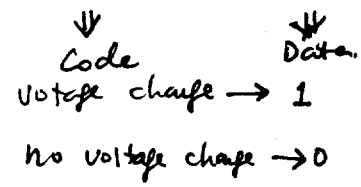 ⇓ ⇓
Code Data.
votage change → 1
no voltage change → 0